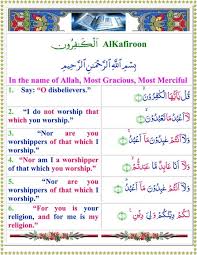 الْكٰفِرُوْن AlKafiroon
بِسْمِ اللّٰهِ الرَّحْمٰنِ الرَّحِيْمِ
In the name of Allah, Most Gracious, Most Merciful
1. Say: "O disbelievers."
قُلْ يٰۤاَيُّهَا الْكٰفِرُوْنَ ﴿١﴾
2. "I do not worship that
which you worship."
لَاۤ اَعْبُدُ مَا تَعْبُدُوْنَ ﴿٢﴾
3. "Nor are you
worshippers of that which I
worship."
وَلَاۤ اَنْتُمْ عٰبِدُوْنَ مَاۤ اَعْبُدُ ﴿٣﴾
4. "Nor am I a worshipper
of that which you worship."
وَلَاۤ اَنَا عَابِدٌ مَّا عَبَدْتُّمْ ﴿٤﴾
5. "Nor are you
worshippers of that which I
worship."
وَلَاۤ اَنْتُمْ عٰبِدُوْنَ مَاۤ اَعْبُدُ ﴿٥﴾
6. "For you is your
religion, and for me is my
religion."
لَكُمْ دِيْنُكُمْ وَلِيَ دِيْنِ ﴿٦﴾